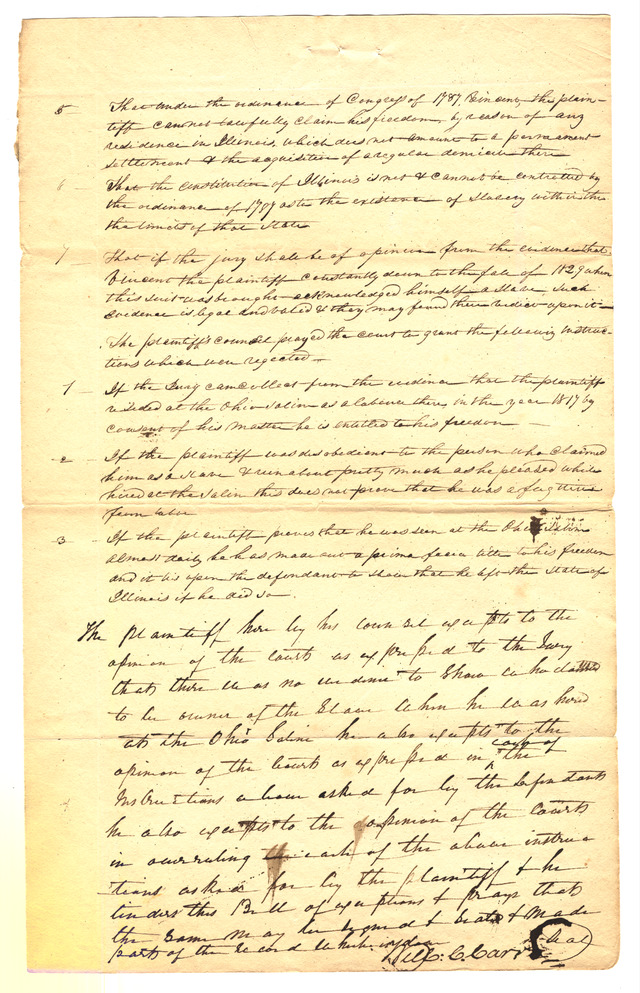 5 That under the ordinance of Congress of 1787, Vincent, the plain-
tiff cannot lawfully claim his freedom, by reason of any
residence in Illinois, which does not amount to a permanent
settlement & the acquisition of a regular domicil there
6 That the constitution of Illinois is not & cannot be controlled by
the ordinance of 1787 as to the existence of Slavery within the
the limits of that State
7 That if the jury shall be of opinion from the evidence that
Vincent the plaintiff constantly down to the fall of 1829 when
this suit was brought acknowledged himself a slave such
evidence is legal and valid & they may found their verdict upon it
The plaintiff's council prayed the court to grant the following instruc-
tions which were rejected
1 If the Jury can collect from the evidence that the plaintiff
resided at the Ohio Salin as a labourer there, in the year 1817 by
consent of his master he is entitled to his freedom
2 If the plaintiff was disobedient to the person who claimed
him as a slave & run about pretty much as he pleased while
hired at the Salin this does not prove that he was a fugitive
from labor
3 If the plaintiff proves that he was seen at the Ohio Salin
almost daily he has made out a prima facia title to his freedom
and it is upon the defendant to show that he left the State of
Illinois if he did so.
The plaintiff here by his counsel excepts to the
opinion of the court as expressed to the Jury
that there was no evidence to Show who
to be owner of the Slave when he was hired
at the Ohio Saline he also excepts to the
opinion of the Court as expressed in the copy of
Instructions above asked for by the defendants
he also excepts to the opinion of the Courts
in overruling each of the above instruc
tions asked for by the plaintiff & he
tenders this Bill of exceptions & prays that
the Same may be signed & Seald & Made
part of the record which is done
Wm. C. Carr Seal